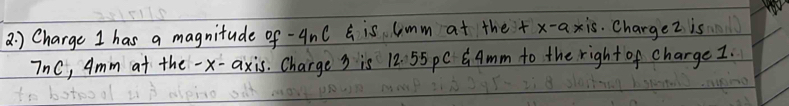 2.) Charge 1 has a magnitude of -4nC & is 6mm at the + x-axis. Charge 2 is
7nC, 4mm at the -x-axis. Charge 3 is 12.55pC & 4mm to the right of charge 1.